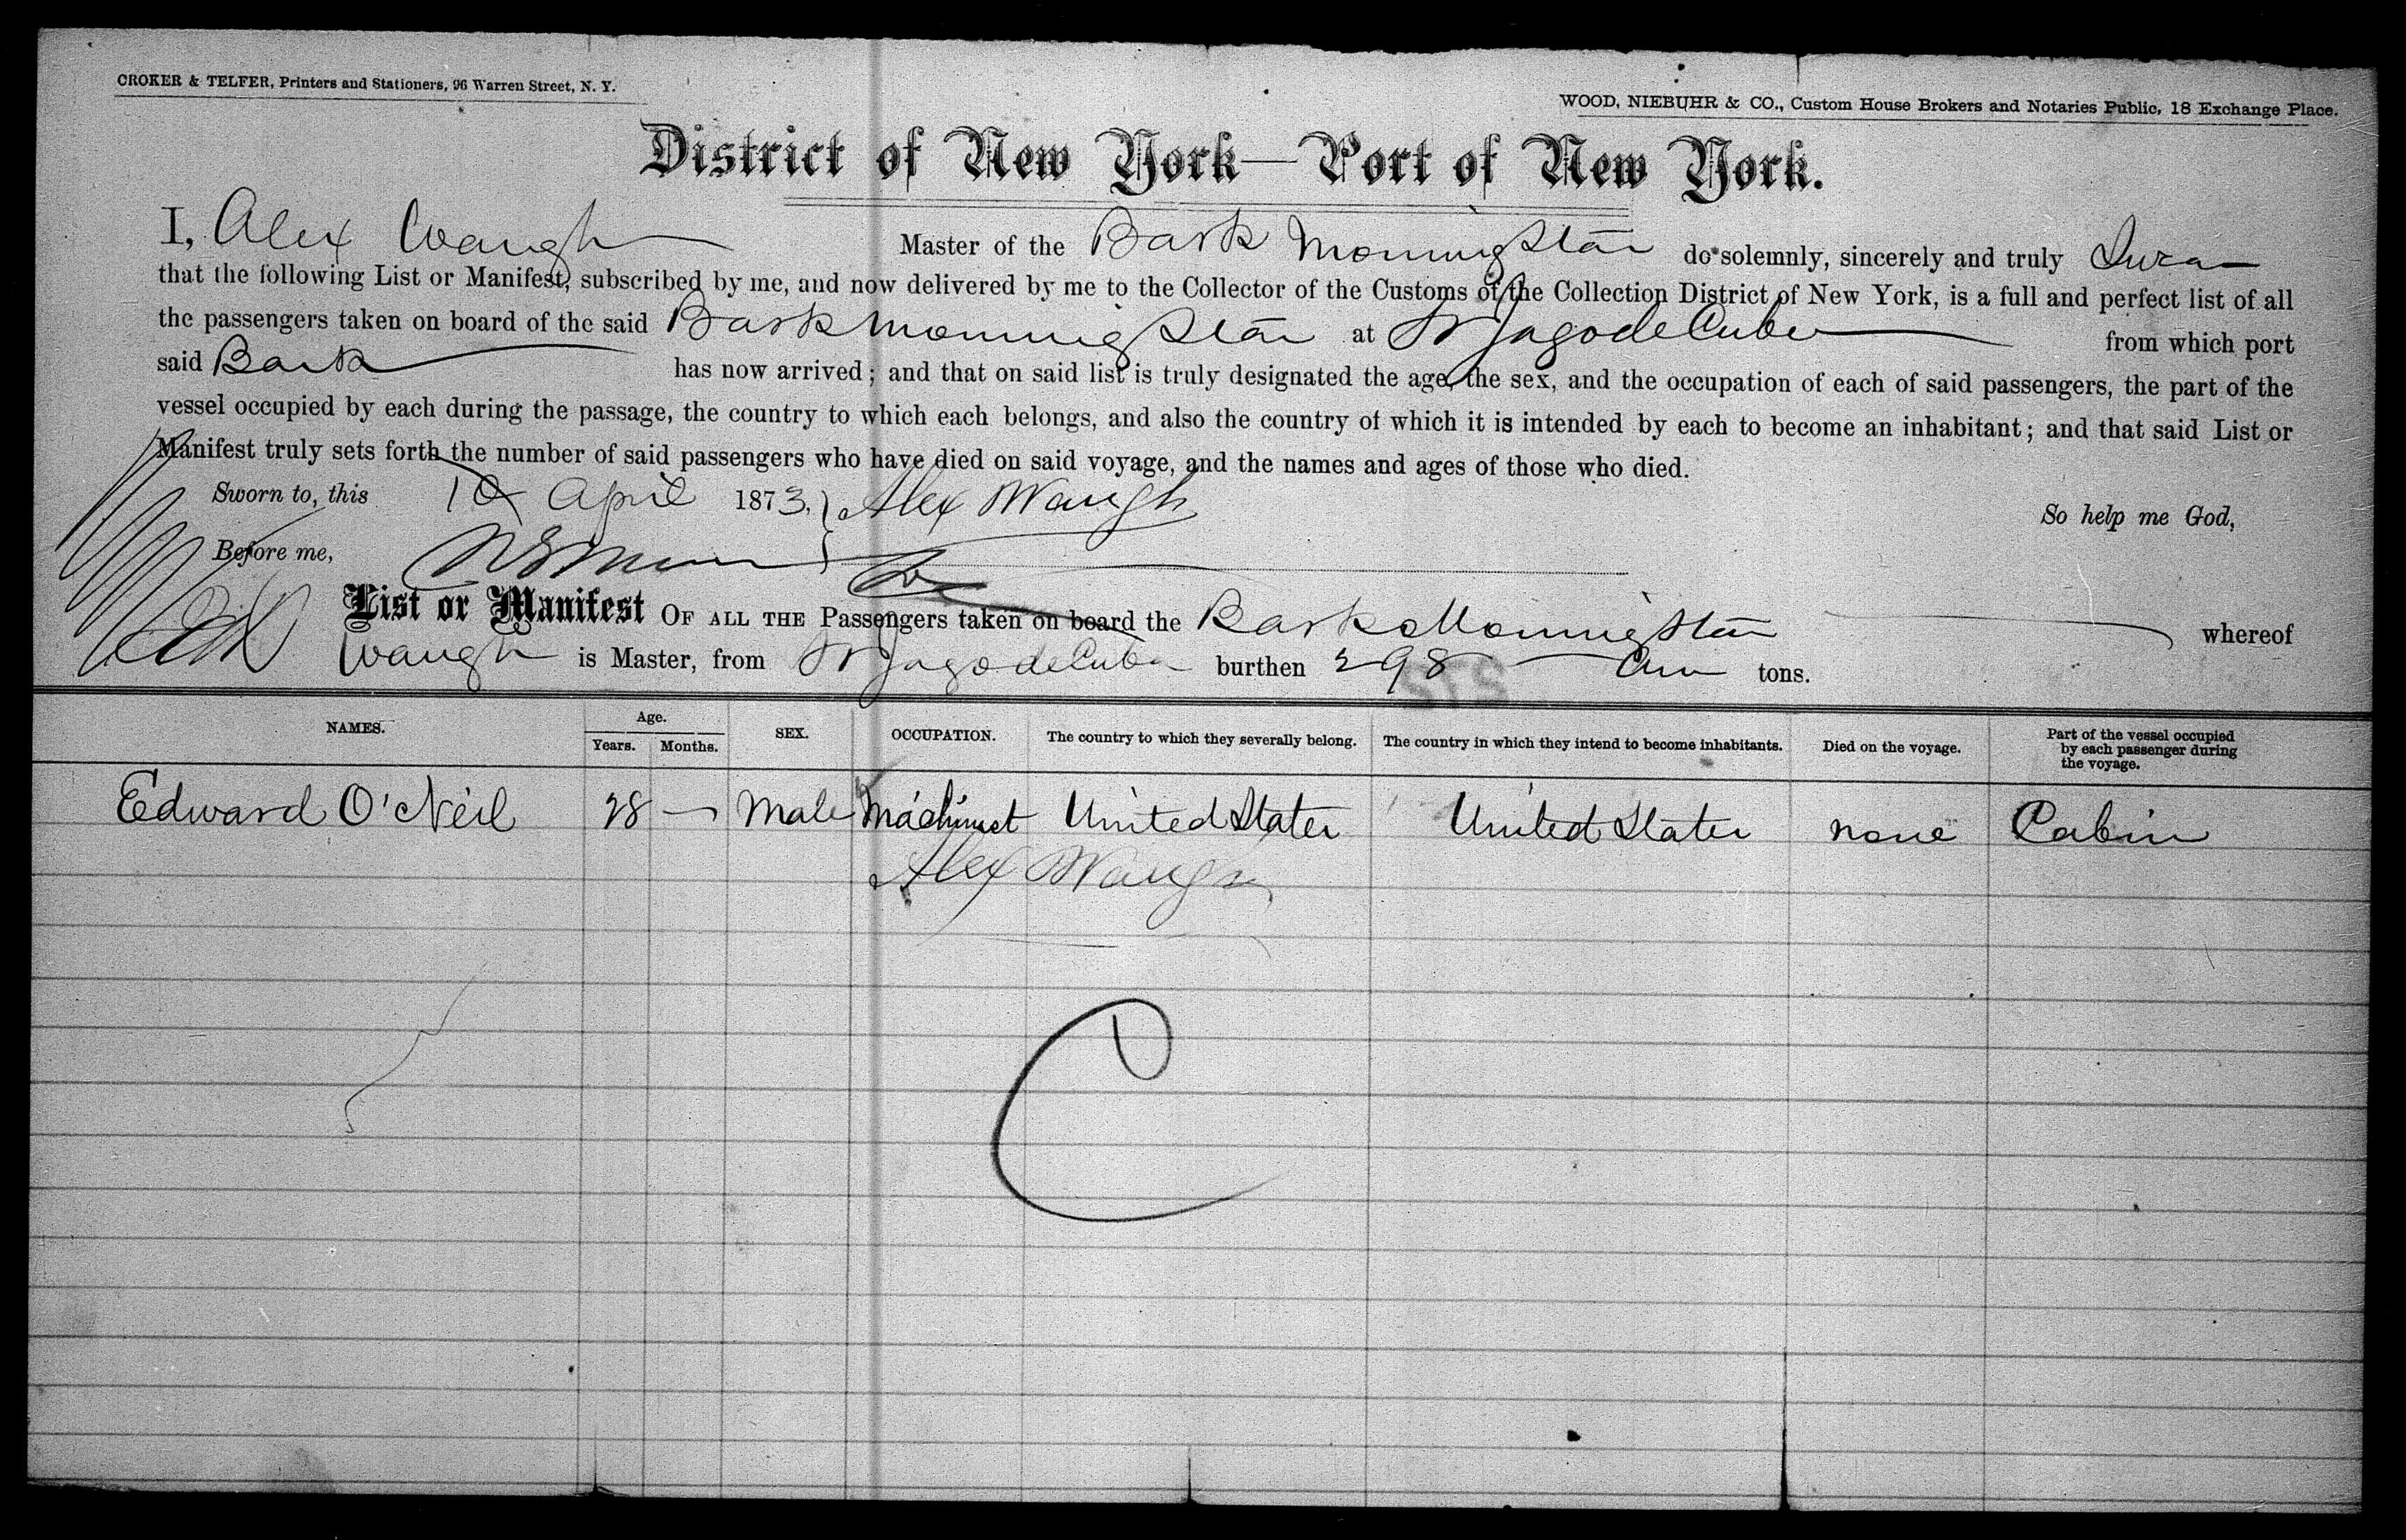 CROKER & TELFER, Printers and Stationers, 96 Warren Street, N. Y.
WOOD, NIEBUHR & CO., Custom House Brokers and Notaries Public, 18 Exchange Place.
District of New York—Port of New York.
I, Alex Waugh Master of the Bark Morning Star do solemnly, sincerely and truly Swear
that the following List or Manifest, subscribed by me, and now delivered by me to the Collector of the Customs of the Collection District of New York, is a full and perfect list of all
the passengers taken on board of the said Bark Morning Star at St Jago de Cuba from which port
said Bark has now arrived; and that on said list is truly designated the age, the sex, and the occupation of each of said passengers, the part of the
vessel occupied by each during the passage, the country to which each belongs, and also the country of which it is intended by each to become an inhabitant; and that said List or
Manifest truly sets forth the number of said passengers who have died on said voyage, and the names and ages of those who died.
Sworn to, this 10 April 1873. Alex Waugh So help me God,
Before me,
List or Manifest OF ALL THE Passengers taken on board the Bark Morning Star whereof
Waugh is Master, from St Jago de Cuba burthen 298 tons.
NAMES. Age. Years. Months. SEX. OCCUPATION. The country to which they severally belong. The country in which they intend to become inhabitants. Died on the voyage. Part of the vessel occupied by each passenger during the voyage.
Edward O'Neil 28 — Male Machinist United States United States none Cabin
Alex Waugh
C